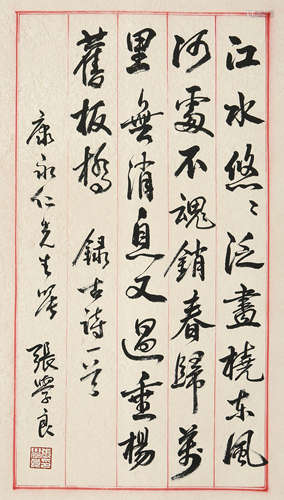 江水悠〻泛畫橈東風
何處不魂銷春歸萬
里無消息又過垂楊
舊板橋 錄古詩一首
康永仁先生 張學良